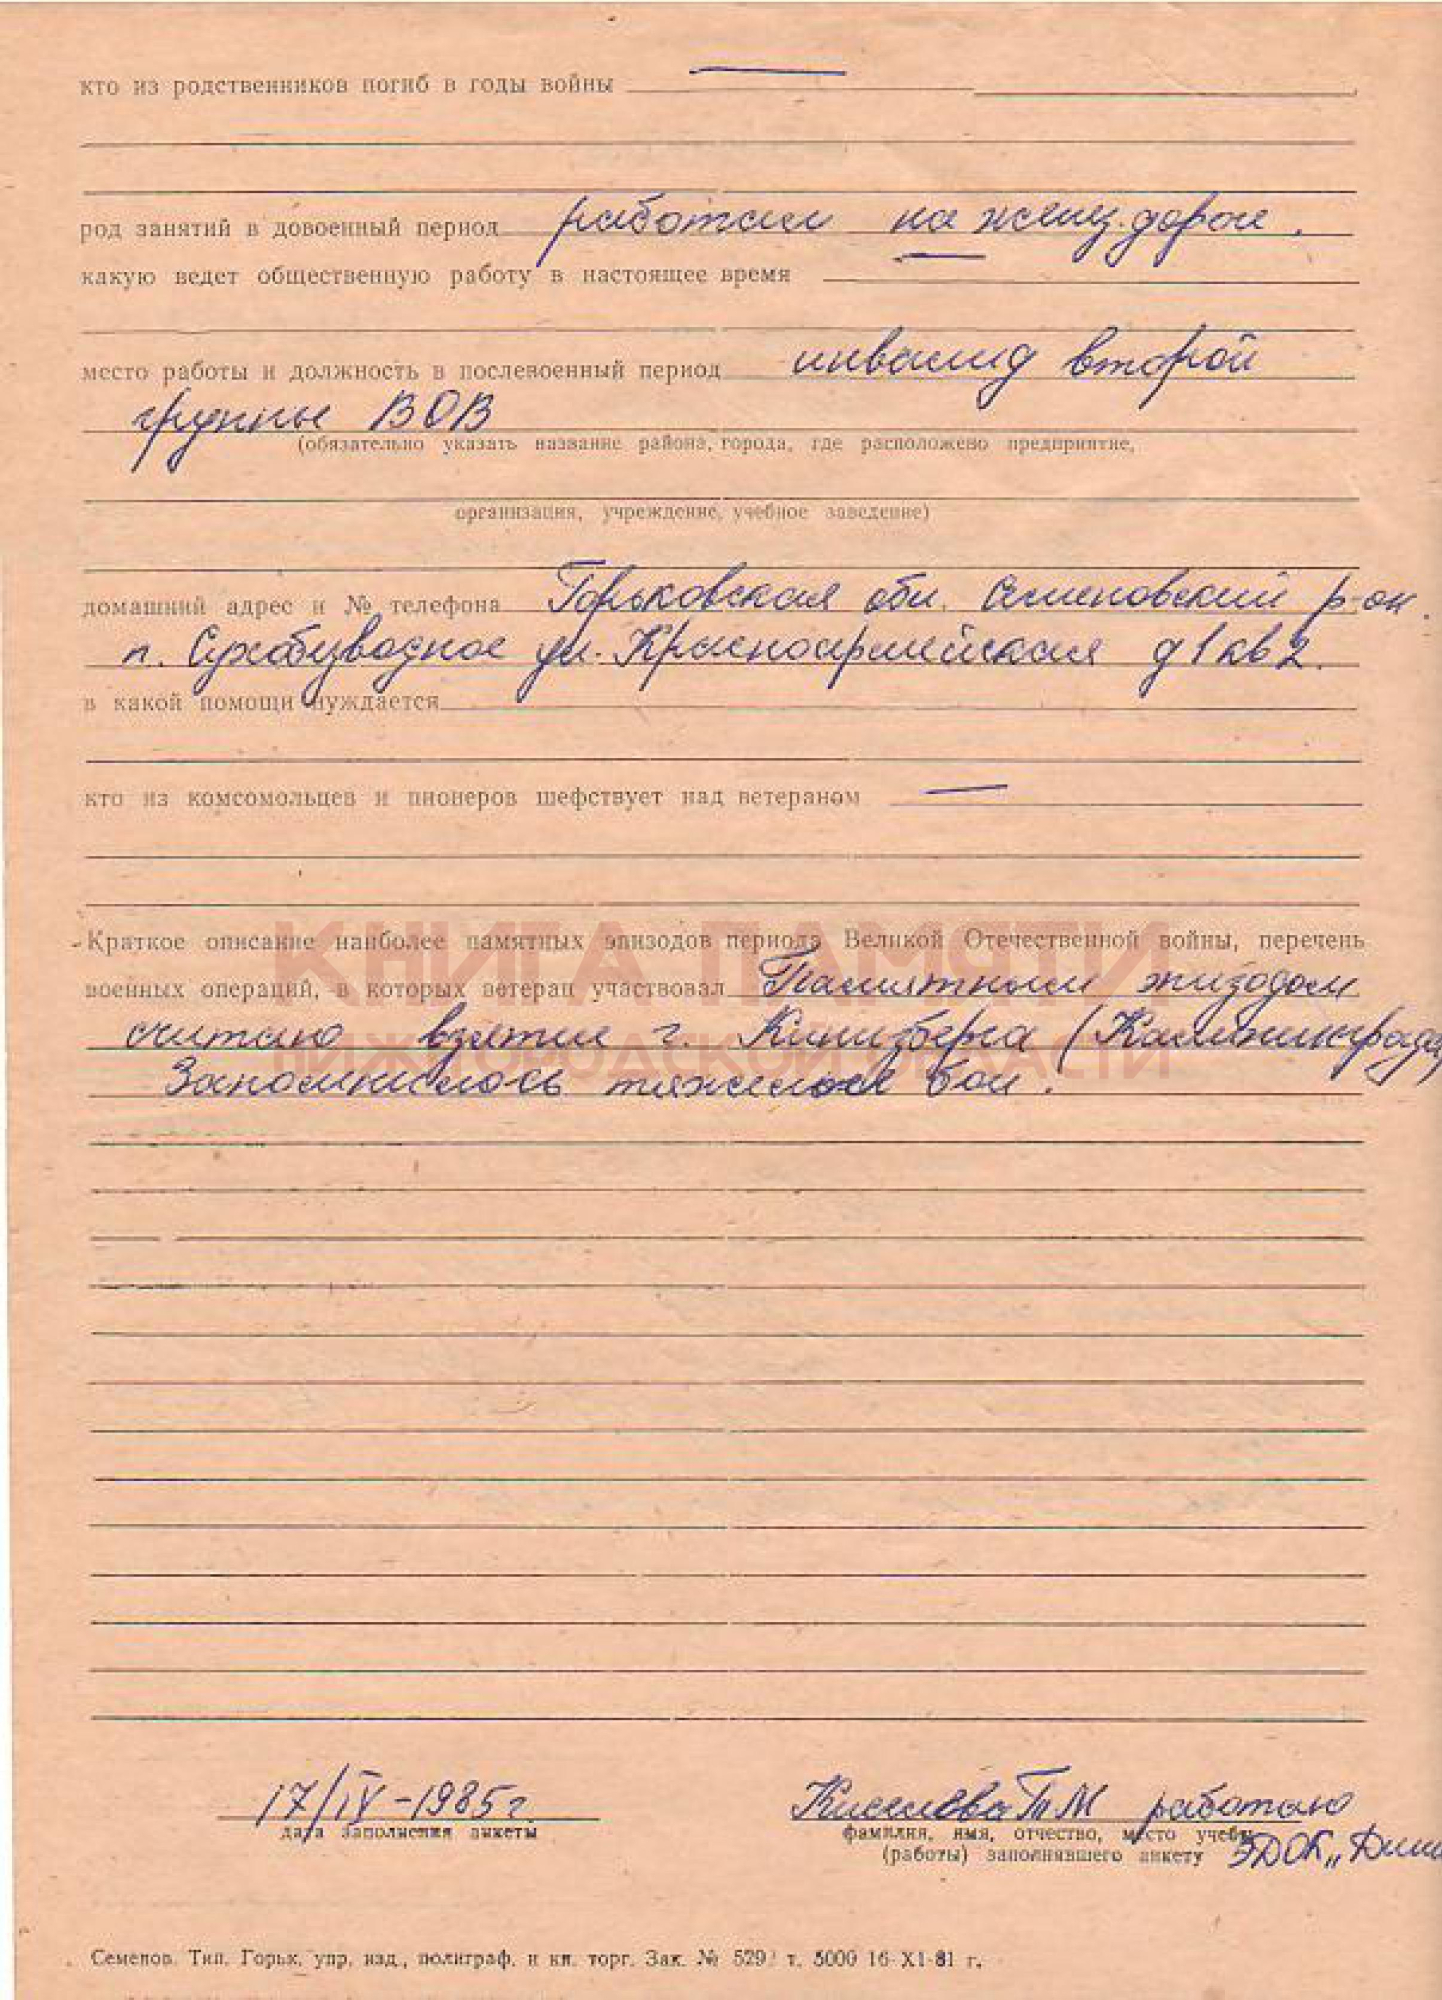 кто из родственников погиб в годы войны —
род занятий в довоенный период работал на желез. дороге.
какую ведет общественную работу в настоящее время —
место работы и должность в послевоенный период инвалид второй
группы ВОВ
(обязательно указать название района, города, где расположено предприятие,
организация, учреждение, учебное заведение)
домашний адрес и № телефона Горьковская обл. Семеновский р-он.
п. Сухобузводное ул. Красноармейская д 1 кв 2.
в какой помощи нуждается
кто из комсомольцев и пионеров шефствует над ветераном —
КНИГА ПАМЯТИ
НИЖГОРОДСКОЙ ОБЛАСТИ
Краткое описание наиболее памятных эпизодов периода Великой Отечественной войны, перечень
военных операций, в которых ветеран участвовал Памятным эпизодом
считаю взятие г. Кинизберга (Калининграда)
Запомнилось тяжелые бои.
17/IV-1985 г
дата заполнения анкеты
Киселева Т М работаю
фамилия, имя, отчество, место учебы
(работы) заполнявшего анкету ЭДОК „
Семенов. Тип. Горьк. упр. изд., полиграф. и кн. торг. Зак. № 529 т. 5000 16-XI-81 г.